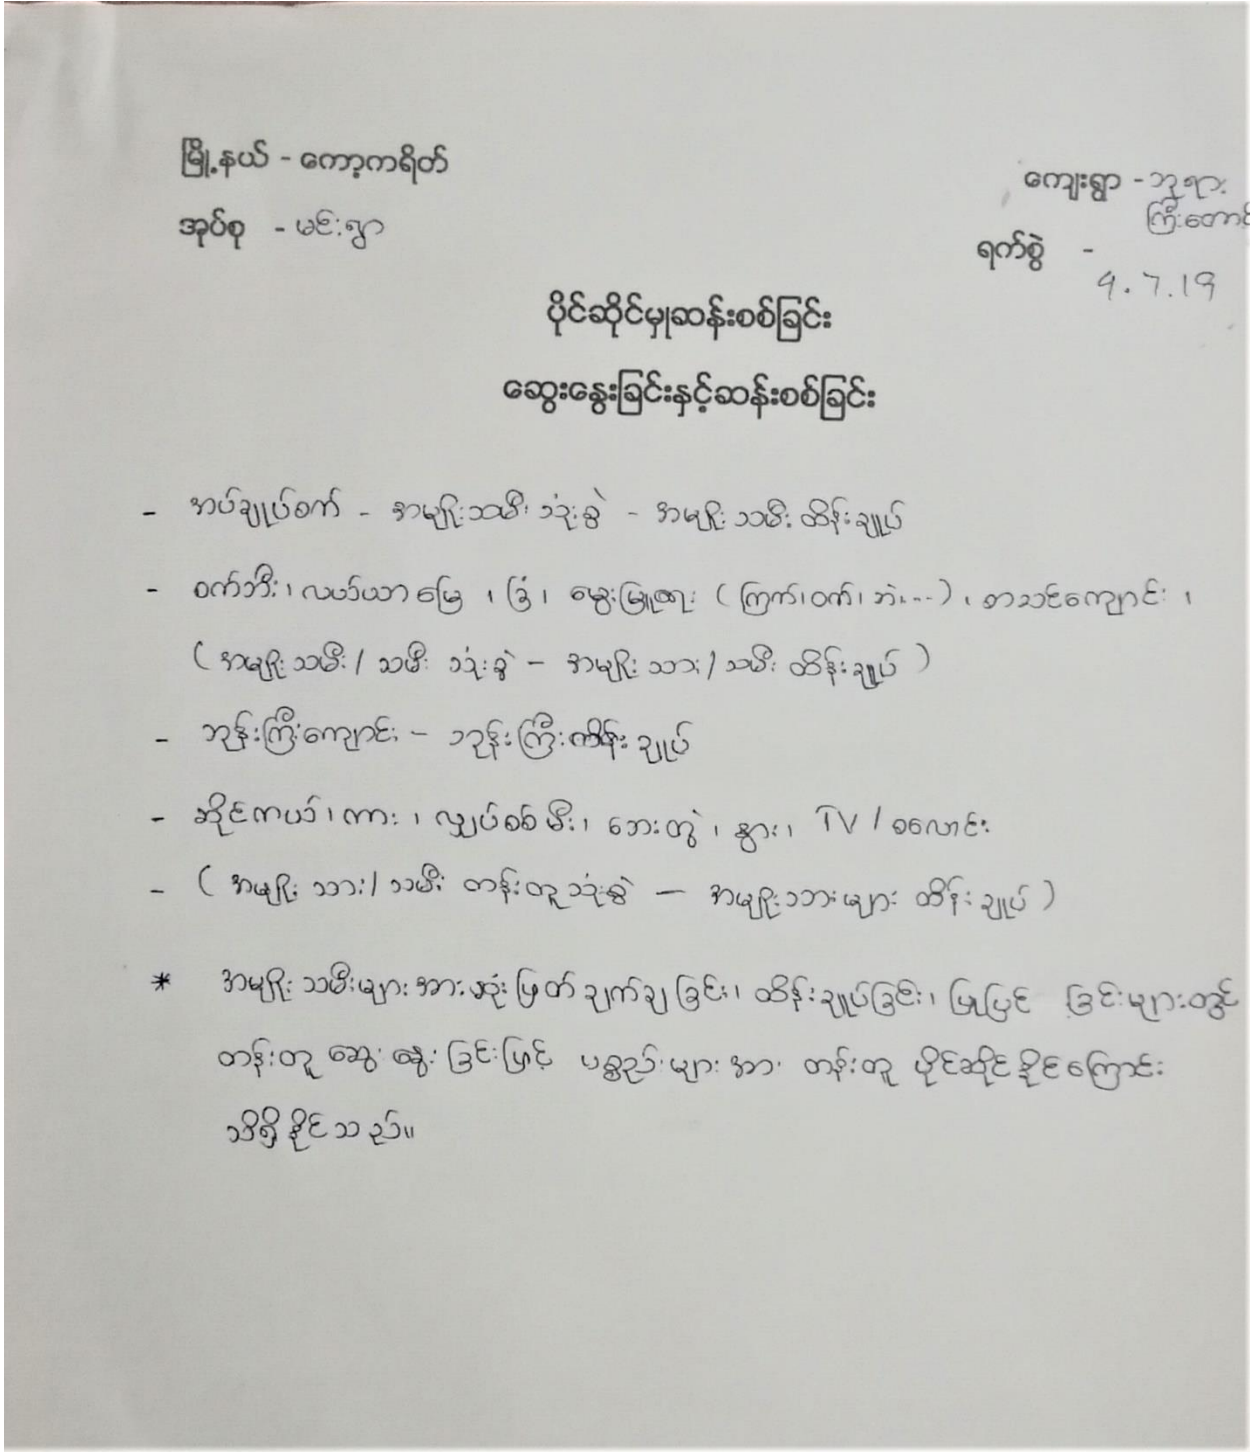 မြို့နယ် - ကော့ကရိတ်
ကျေးရွာ - ဘုရား
ကြီးတောင်
အုပ်စု - မင်းရွာ
ရက်စွဲ -
9.7.19
ပိုင်ဆိုင်မှုဆန်းစစ်ခြင်း
ဆွေးနွေးခြင်းနှင့်ဆန်းစစ်ခြင်း
- အပ်ချုပ်စက် - အမျိုးသမီး သုံးစွဲ - အမျိုးသမီး ထိန်းချုပ်
- စက်ဘီး၊ လယ်ယာမြေ ၊ ခြံ ၊ မွေးမြူရေး (ကြက်၊ ဝက်၊ ဘဲ...) ၊ စာသင်ကျောင်း ၊
(အမျိုးသမီး / သမီး သုံးစွဲ - အမျိုးသား / သမီး ထိန်းချုပ်)
- ဘုန်းကြီးကျောင်း - ဘုန်းကြီးထိန်းချုပ်
- ဆိုင်ကယ်၊ ကား ၊ လျှပ်စစ်မီး၊ ဘေးတွဲ ၊ နွား၊ TV / စလောင်း
- (အမျိုးသား / သမီး တန်းတူသုံးစွဲ — အမျိုးသားများ ထိန်းချုပ်)
* အမျိုးသမီးများအား ဆုံးဖြတ်ချက်ချခြင်း၊ ထိန်းချုပ်ခြင်း၊ ပြုပြင် ခြင်းများတွင်
တန်းတူ ဆွေးနွေးခြင်းဖြင့် ပစ္စည်းများအား တန်းတူ ပိုင်ဆိုင်နိုင်ကြောင်း
သိရှိနိုင်သည်။